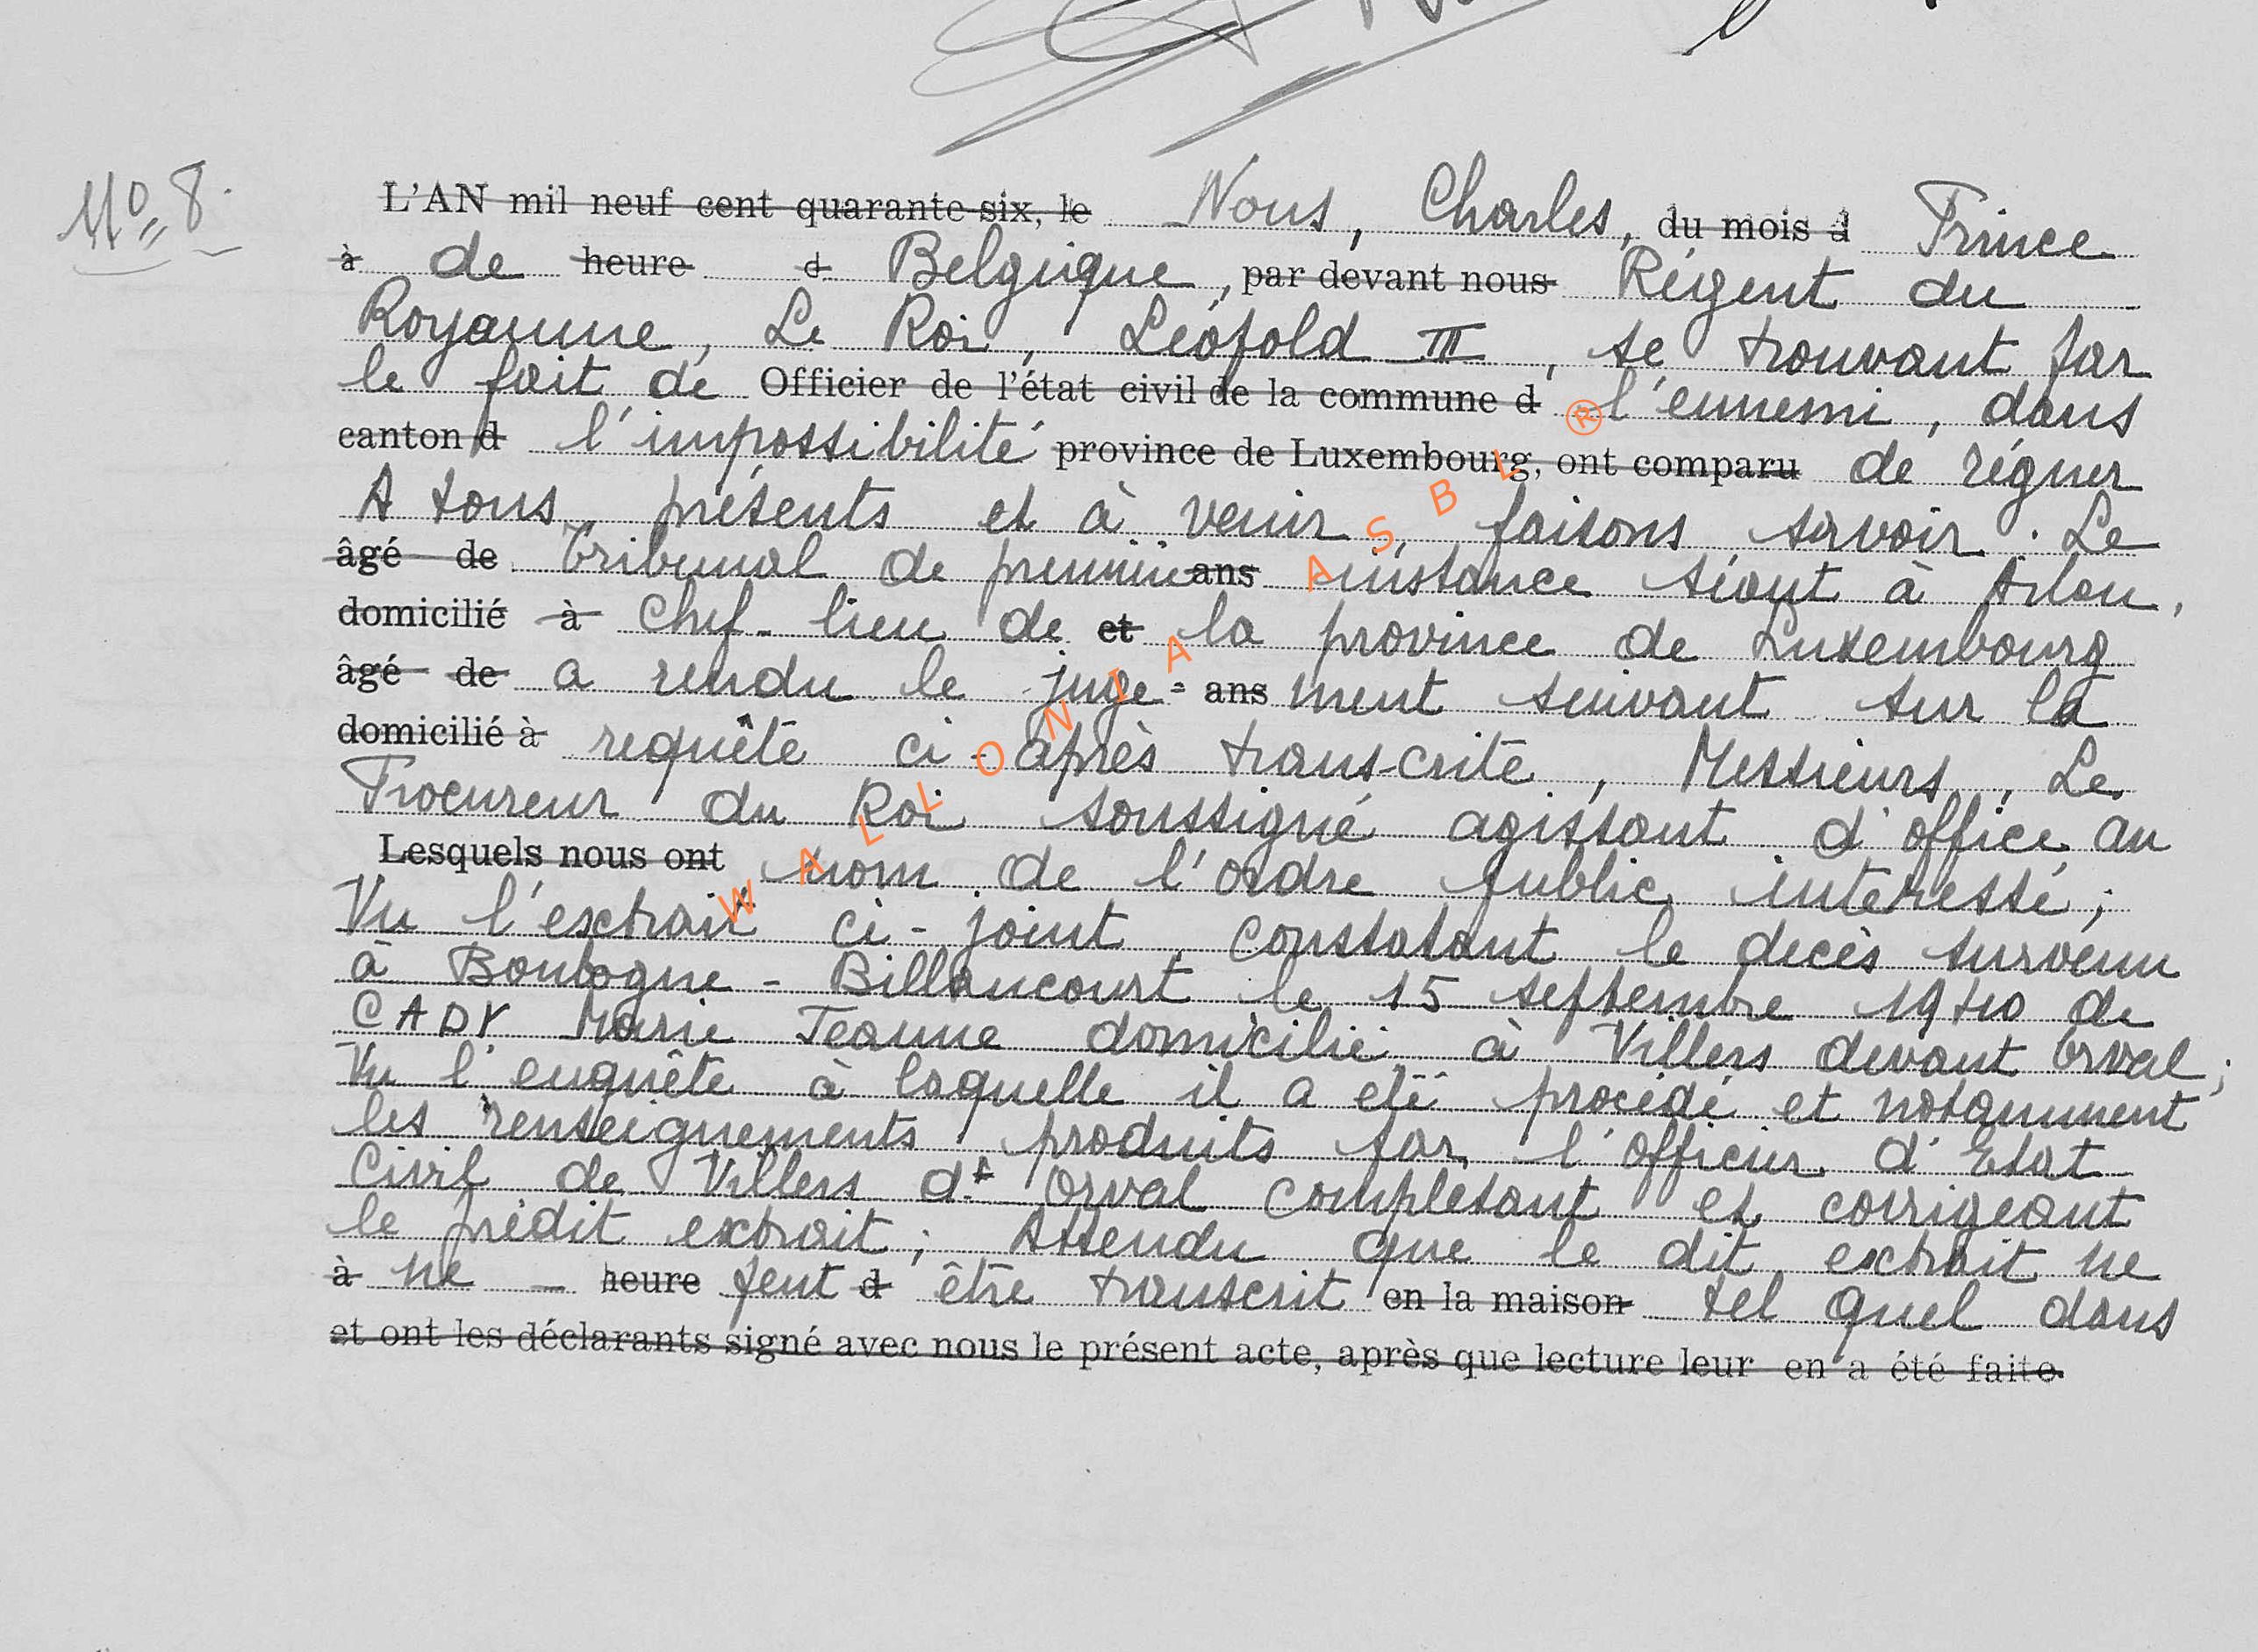 Nº 8.
L'AN mil neuf cent quarante-six, le Nous, Charles, du mois d Prince
à de heure d Belgique, par devant nous Régent du
Royaume, Le Roi, Léopold III, se trouvant par
le fait de Officier de l'état civil de la commune d l'ennemi, dans
canton d l'impossibilité province de Luxembourg, ont comparu de régner
A tous présents et à venir, faisons savoir. Le
âgé de Tribunal de première ans instance séant à Arlon,
domicilié à Chef-lieu de et la province de Luxembourg
âgé de a rendu le juge= ans ment suivant sur la
domicilié à requête ci-après trans-crite, Messieurs, Le
Procureur du Roi soussigné agissant d'office au
Lesquels nous ont nom de l'ordre public intéressé;
Vu l'extrait ci-joint, constatant le décès survenu
à Boulogne-Billancourt le 15 septembre 1940 de
CADY Marie Jeanne domicilié à Villers devant Orval;
Vu l'enquête à laquelle il a été procédé et notamment
les renseignements produits par l'officier d'Etat
Civil de Villers dt Orval complétant et corrigeant
le prédit extrait; Attendu que le dit extrait ne
à ne - heure peut d être transcrit en la maison tel quel dans
et ont les déclarants signé avec nous le présent acte, après que lecture leur en a été faite.
WALLONIA ASBL ®